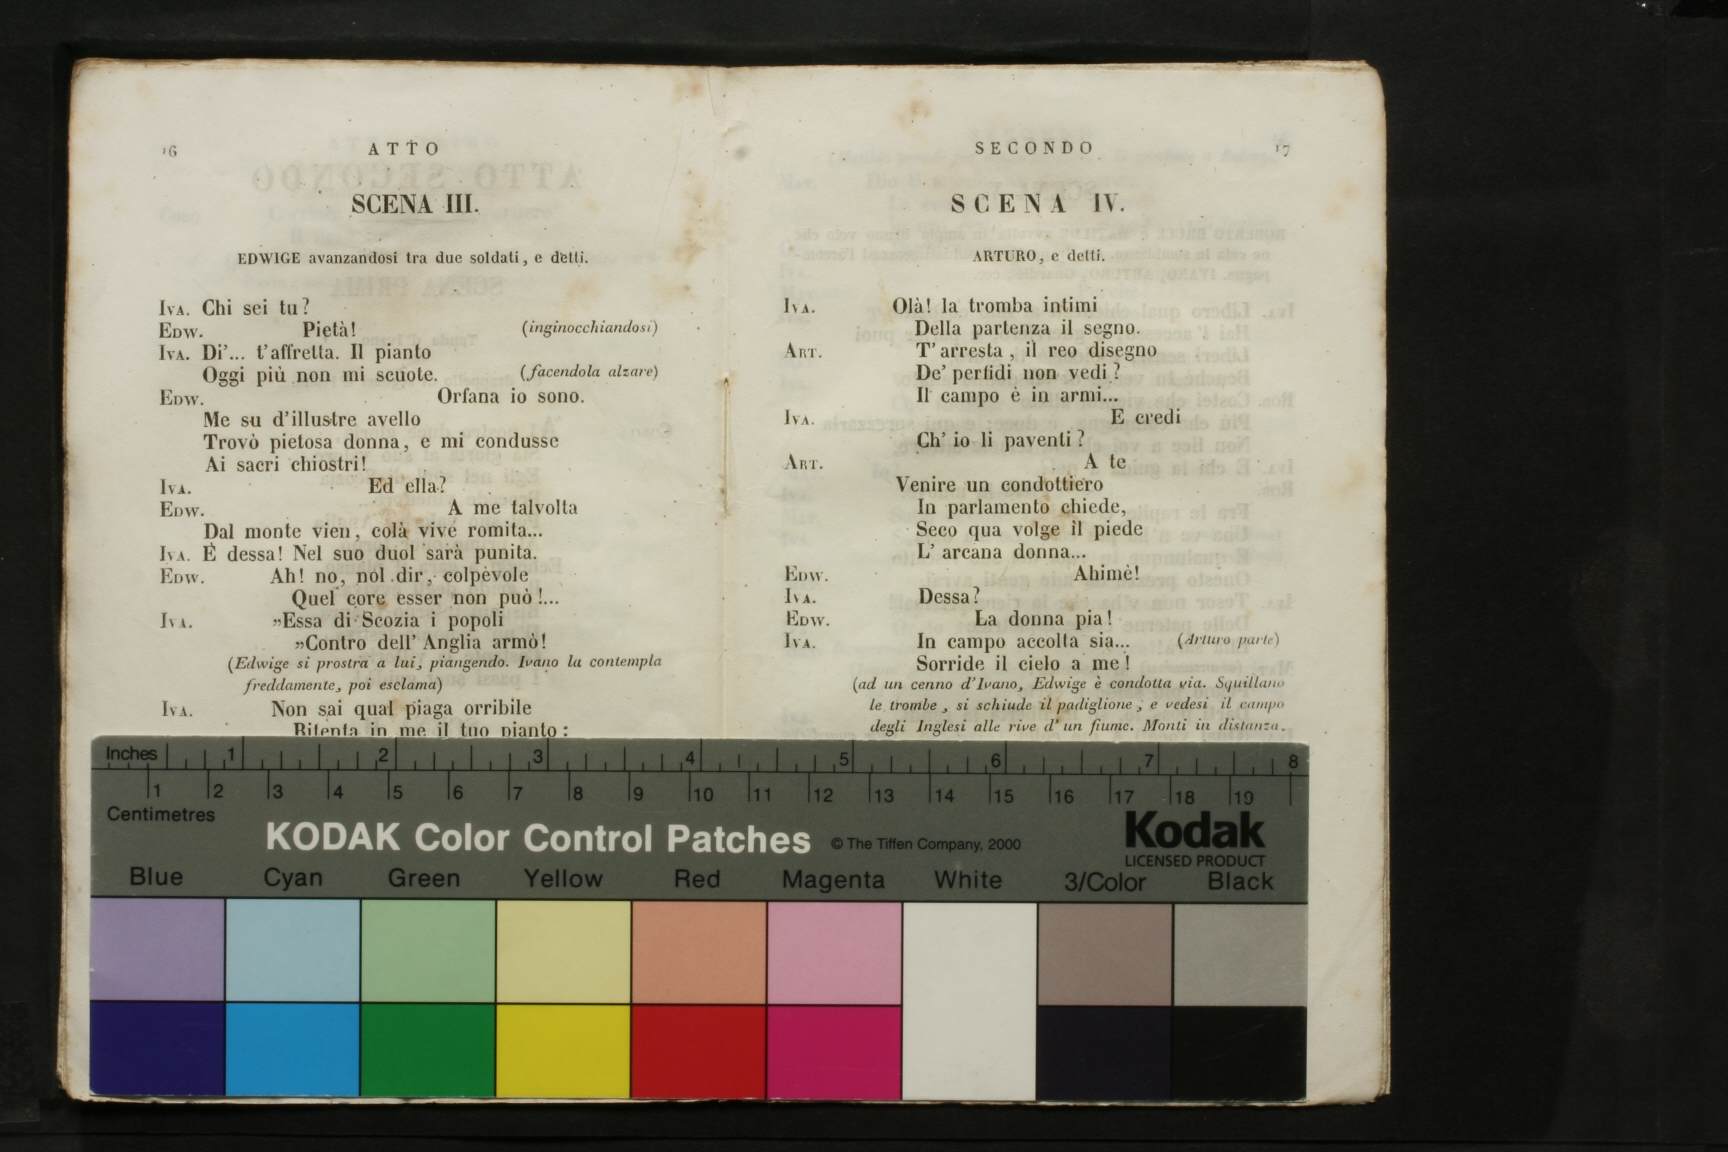 16
ATTO
SCENA III.
EDWIGE avanzandosi tra due soldati, e detti.
Iva. Chi sei tu?
Edw. Pietà! (inginocchiandosi)
Iva. Di'... t'affretta. Il pianto
Oggi più non mi scuote. (facendola alzare)
Edw. Orfana io sono.
Me su d'illustre avello
Trovò pietosa donna, e mi condusse
Ai sacri chiostri!
Iva. Ed ella?
Edw. A me talvolta
Dal monte vien, colà vive romita...
Iva. È dessa! Nel suo duol sarà punita.
Edw. Ah! no, nol dir, colpevole
Quel core esser non può!...
Iva. »Essa di Scozia i popoli
»Contro dell' Anglia armò!
(Edwige si prostra a lui, piangendo. Ivano la contempla
freddamente, poi esclama)
Iva. Non sai qual piaga orribile
Ritenta in me il tuo pianto:
SECONDO
17
SCENA IV.
ARTURO, e detti.
Iva. Olà! la tromba intimi
Della partenza il segno.
Art. T'arresta, il reo disegno
De' perfidi non vedi?
Il campo è in armi...
Iva. E credi
Ch' io li paventi?
Art. A te
Venire un condottiero
In parlamento chiede,
Seco qua volge il piede
L' arcana donna...
Edw. Ahimè!
Iva. Dessa?
Edw. La donna pia!
Iva. In campo accolta sia... (Arturo parte)
Sorride il cielo a me!
(ad un cenno d'Ivano, Edwige è condotta via. Squillano
le trombe, si schiude il padiglione, e vedesi il campo
degli Inglesi alle rive d'un fiume. Monti in distanza.
Inches 1 2 3 4 5 6 7 8
1 2 3 4 5 6 7 8 9 10 11 12 13 14 15 16 17 18 19
Centimetres
KODAK Color Control Patches © The Tiffen Company, 2000
Kodak
LICENSED PRODUCT
Blue Cyan Green Yellow Red Magenta White 3/Color Black